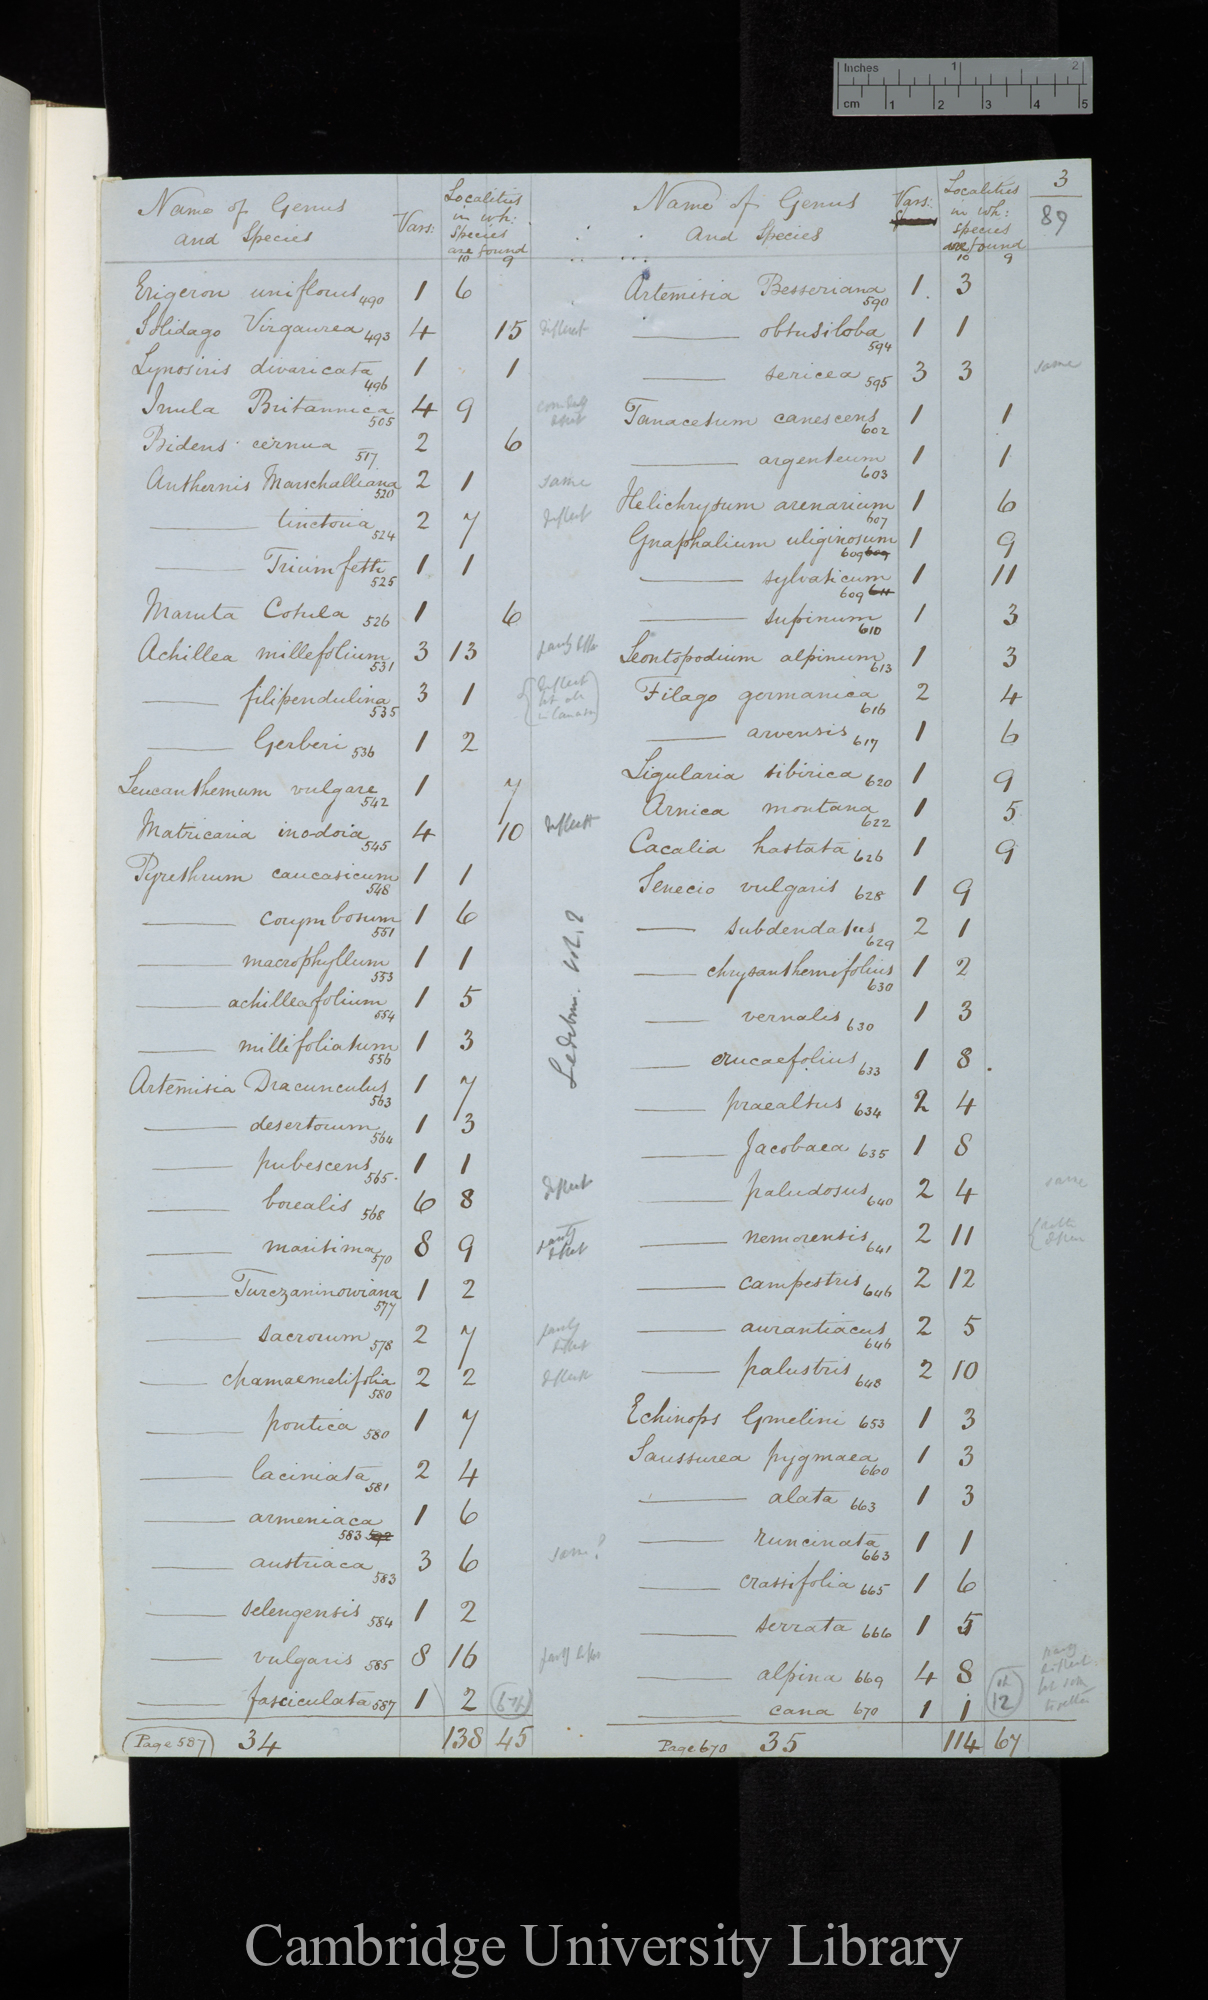 Inches 1 2
cm 1 2 3 4 5
3
89
Name of Genus and Species Vars: Localities in wh: Species are found 10 9
Erigeron uniflorus 490 1 6
Solidago Virgaurea 493 4 15
Lynosiris divaricata 496 1 1
Inula Britannica 505 4 9
Bidens cernua 517 2 6
Anthemis Marschalliana 520 2 1 same
——— tinctoria 524 2 7
——— Triumfetti 525 1 1
Maruta Cotula 526 1 6
Achillea millefolium 531 3 13
——— filipendulina 535 3 1
——— Gerberi 536 1 2
Leucanthemum vulgare 542 1 7
Matricaria inodora 545 4 10
Pyrethrum caucasicum 548 1 1
——— corymbosum 551 1 6
——— macrophyllum 553 1 1
——— achilleafolium 554 1 5
——— millifoliatum 556 1 3
Artemisia Dracunculus 563 1 7
——— desertorum 564 1 3
——— pubescens 565 1 1
——— borealis 568 6 8
——— maritima 570 8 9
——— Turczaninowiana 577 1 2
——— sacrorum 578 2 7
——— chamaemelifolia 580 2 2
——— pontica 580 1 7
——— laciniata 581 2 4
——— armeniaca 583 592 1 6
——— austriaca 583 3 6 same?
——— selengensis 584 1 2
——— vulgaris 585 8 16
——— fasciculata 587 1 2
Page 587 34 138 45
Ledebour. vol. 2
Name of Genus and Species Vars: Species Localities in wh: species are found 10 9
Artemisia Besseriana 590 1 3
——— obtusiloba 594 1 1
——— sericea 595 3 3 same
Tanacetum canescens 602 1 1
——— argenteum 603 1 1
Helichrysum arenarium 607 1 6
Gnaphalium uliginosum 609 609 1 9
——— sylvaticum 609 611 1 11
——— supinum 610 1 3
Leontopodium alpinum 613 1 3
Filago germanica 616 2 4
——— arvensis 617 1 6
Ligularia sibirica 620 1 9
Arnica montana 622 1 5
Cacalia hastata 626 1 9
Senecio vulgaris 628 1 9
——— subdendatus 629 2 1
——— chrysanthemifolius 630 1 2
——— vernalis 630 1 3
——— erucaefolius 633 1 8
——— praealtus 634 2 4
——— Jacobaea 635 1 8
——— paludosus 640 2 4 same
——— nemorensis 641 2 11
——— campestris 646 2 12
——— aurantiacus 646 2 5
——— palustris 648 2 10
Echinops Gmelini 653 1 3
Saussurea pygmaea 660 1 3
——— alata 663 1 3
——— runcinata 663 1 1
——— crassifolia 665 1 6
——— serrata 666 1 5
——— alpina 669 4 8
——— cana 670 1 1 12
Page 670 35 114 67
Cambridge University Library